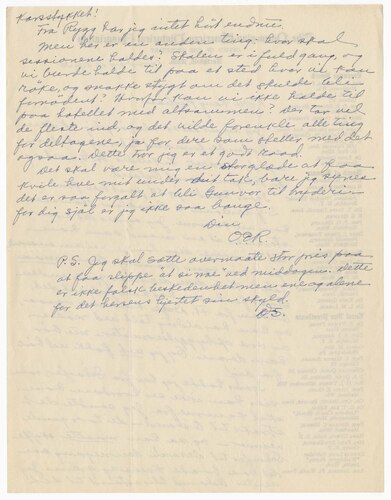 Karsstykket!
Fra Rygg har jeg intet hört endnu.
Men her er en anden ting: hvor skal
sessionene holdes? Skolen er i fuld gang, og
vi burde holde til paa et sted hvor vi kan
röke, og snakke stygt om det skulde bli
fornödent? Hvorfor kan vi ikke holde til
paa hotellet med altsammen? Der tar vel
de fleste ind, og det vilde forenkle alle ting
for deltagerne, ja for dere som steller med det
ogsaa. Dette tror jeg er et godt raad.
Det skal være mig en stor glæde at faa
hvile hue mit under dit tak, bare jeg synes
det er saa forgalt at bli Gunvor til byrde;
for dig sjæl er jeg ikke saa bange.
Din
O.E.R.
P.S. Jeg skal sætte overmaate stor pris paa
at faa slippe "at si noe" ved middagen. Dette
er ikke falsk beskedenhet men ene og alene
for det hersens hjertet sin skyld.
D.S.